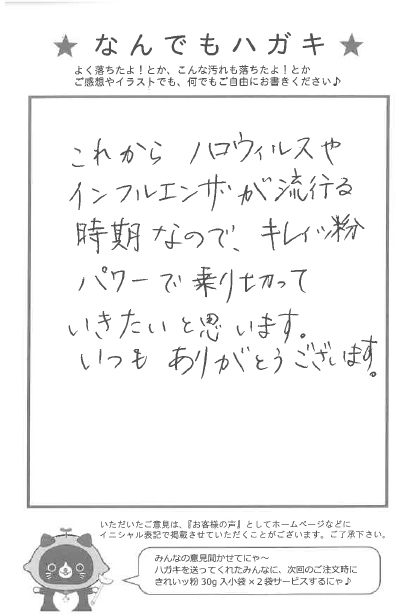 ★ なんでもハガキ ★
よく落ちたよ！とか、こんな汚れも落ちたよ！とか
ご感想やイラストでも、何でもご自由にお書きください♪
これから ハロウィルスや
インフルエンザが流行る
時期なので、キレイッ粉
パワーで乗り切って
いきたいと思います。
いつも ありがとうございます。
いただいたご意見は、『お客様の声』としてホームページなどに
イニシャル表記で掲載させていただくことがございます。ご了承下さい。
みんなの意見聞かせてにゃ〜
ハガキを送ってくれたみんなに、次回のご注文時に
きれいッ粉 30g 入小袋×２袋サービスするにゃ♪